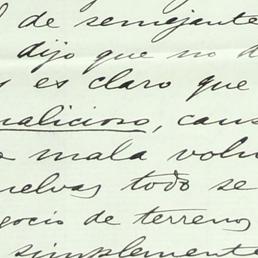 de semejante
dijo que no d
s es claro que
malicioso, caus
mala volu
uelvas todo se
gocio de terrenos
simplemente